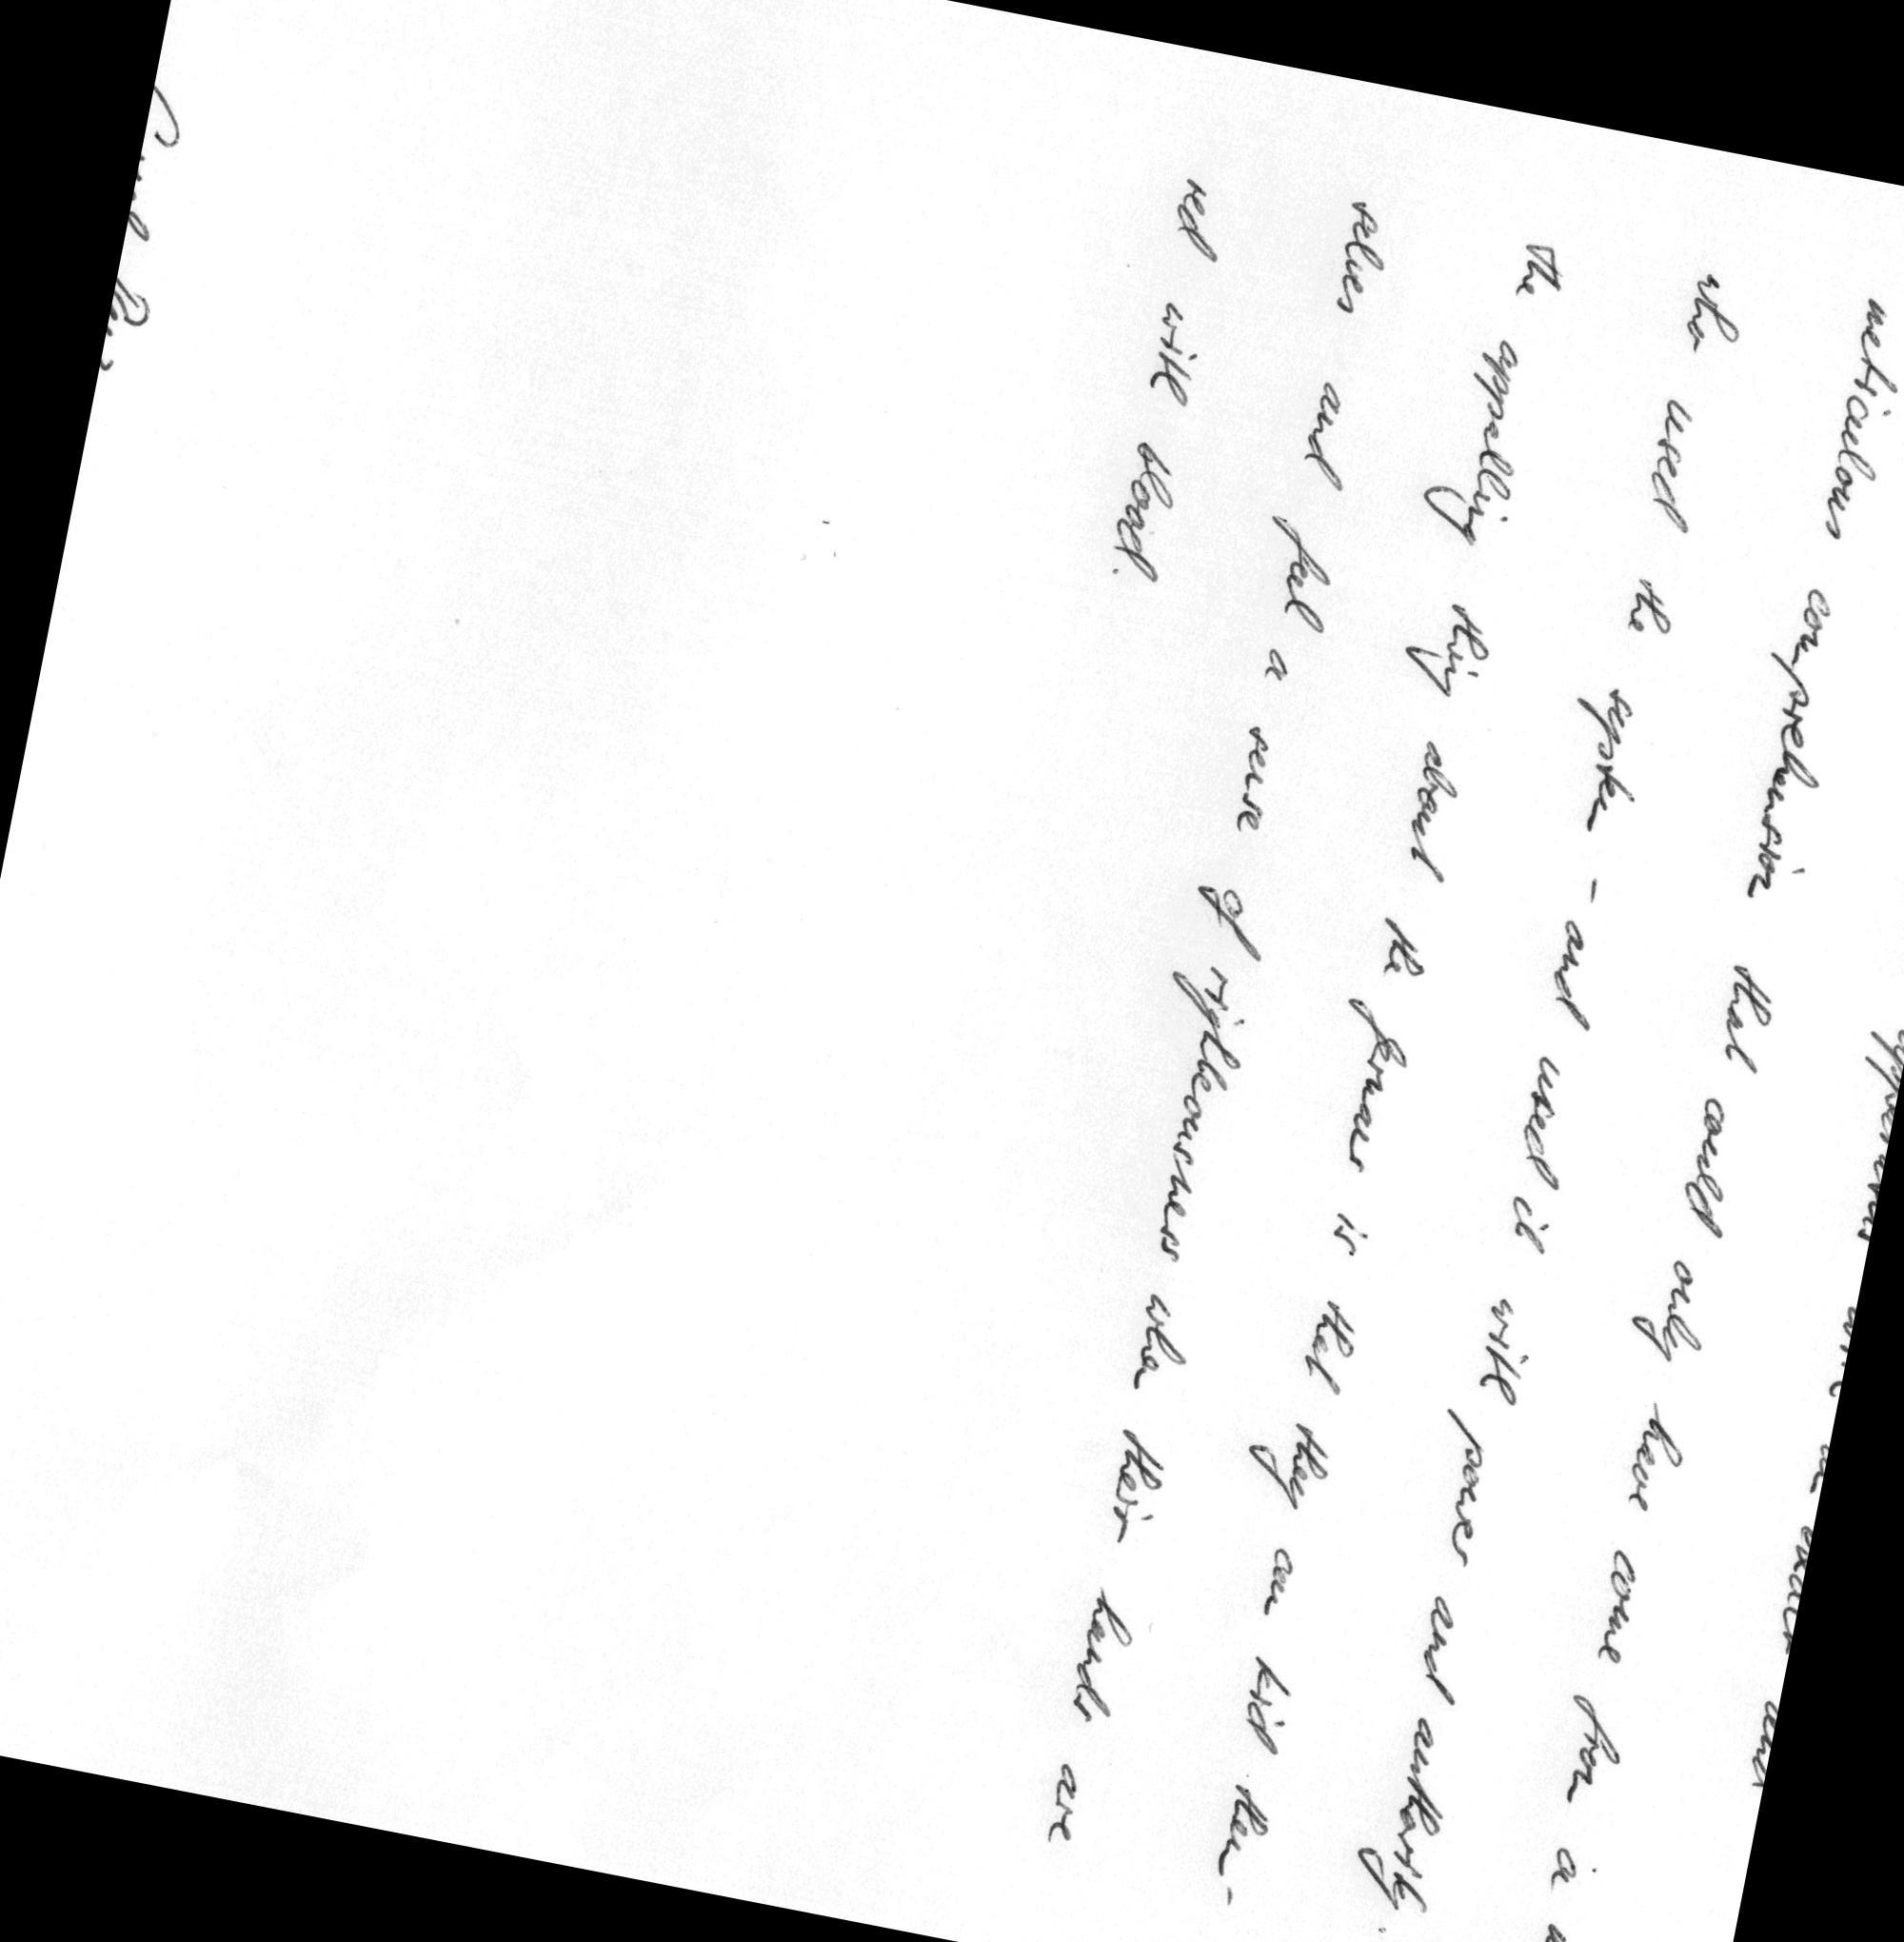 meticulous comprehension that could only have come from a
who used the system - and used it with power and authority.
The appalling thing about the femous is that they can kid them-
selves and feel a sense of righteousness when their hands are
red with blood.